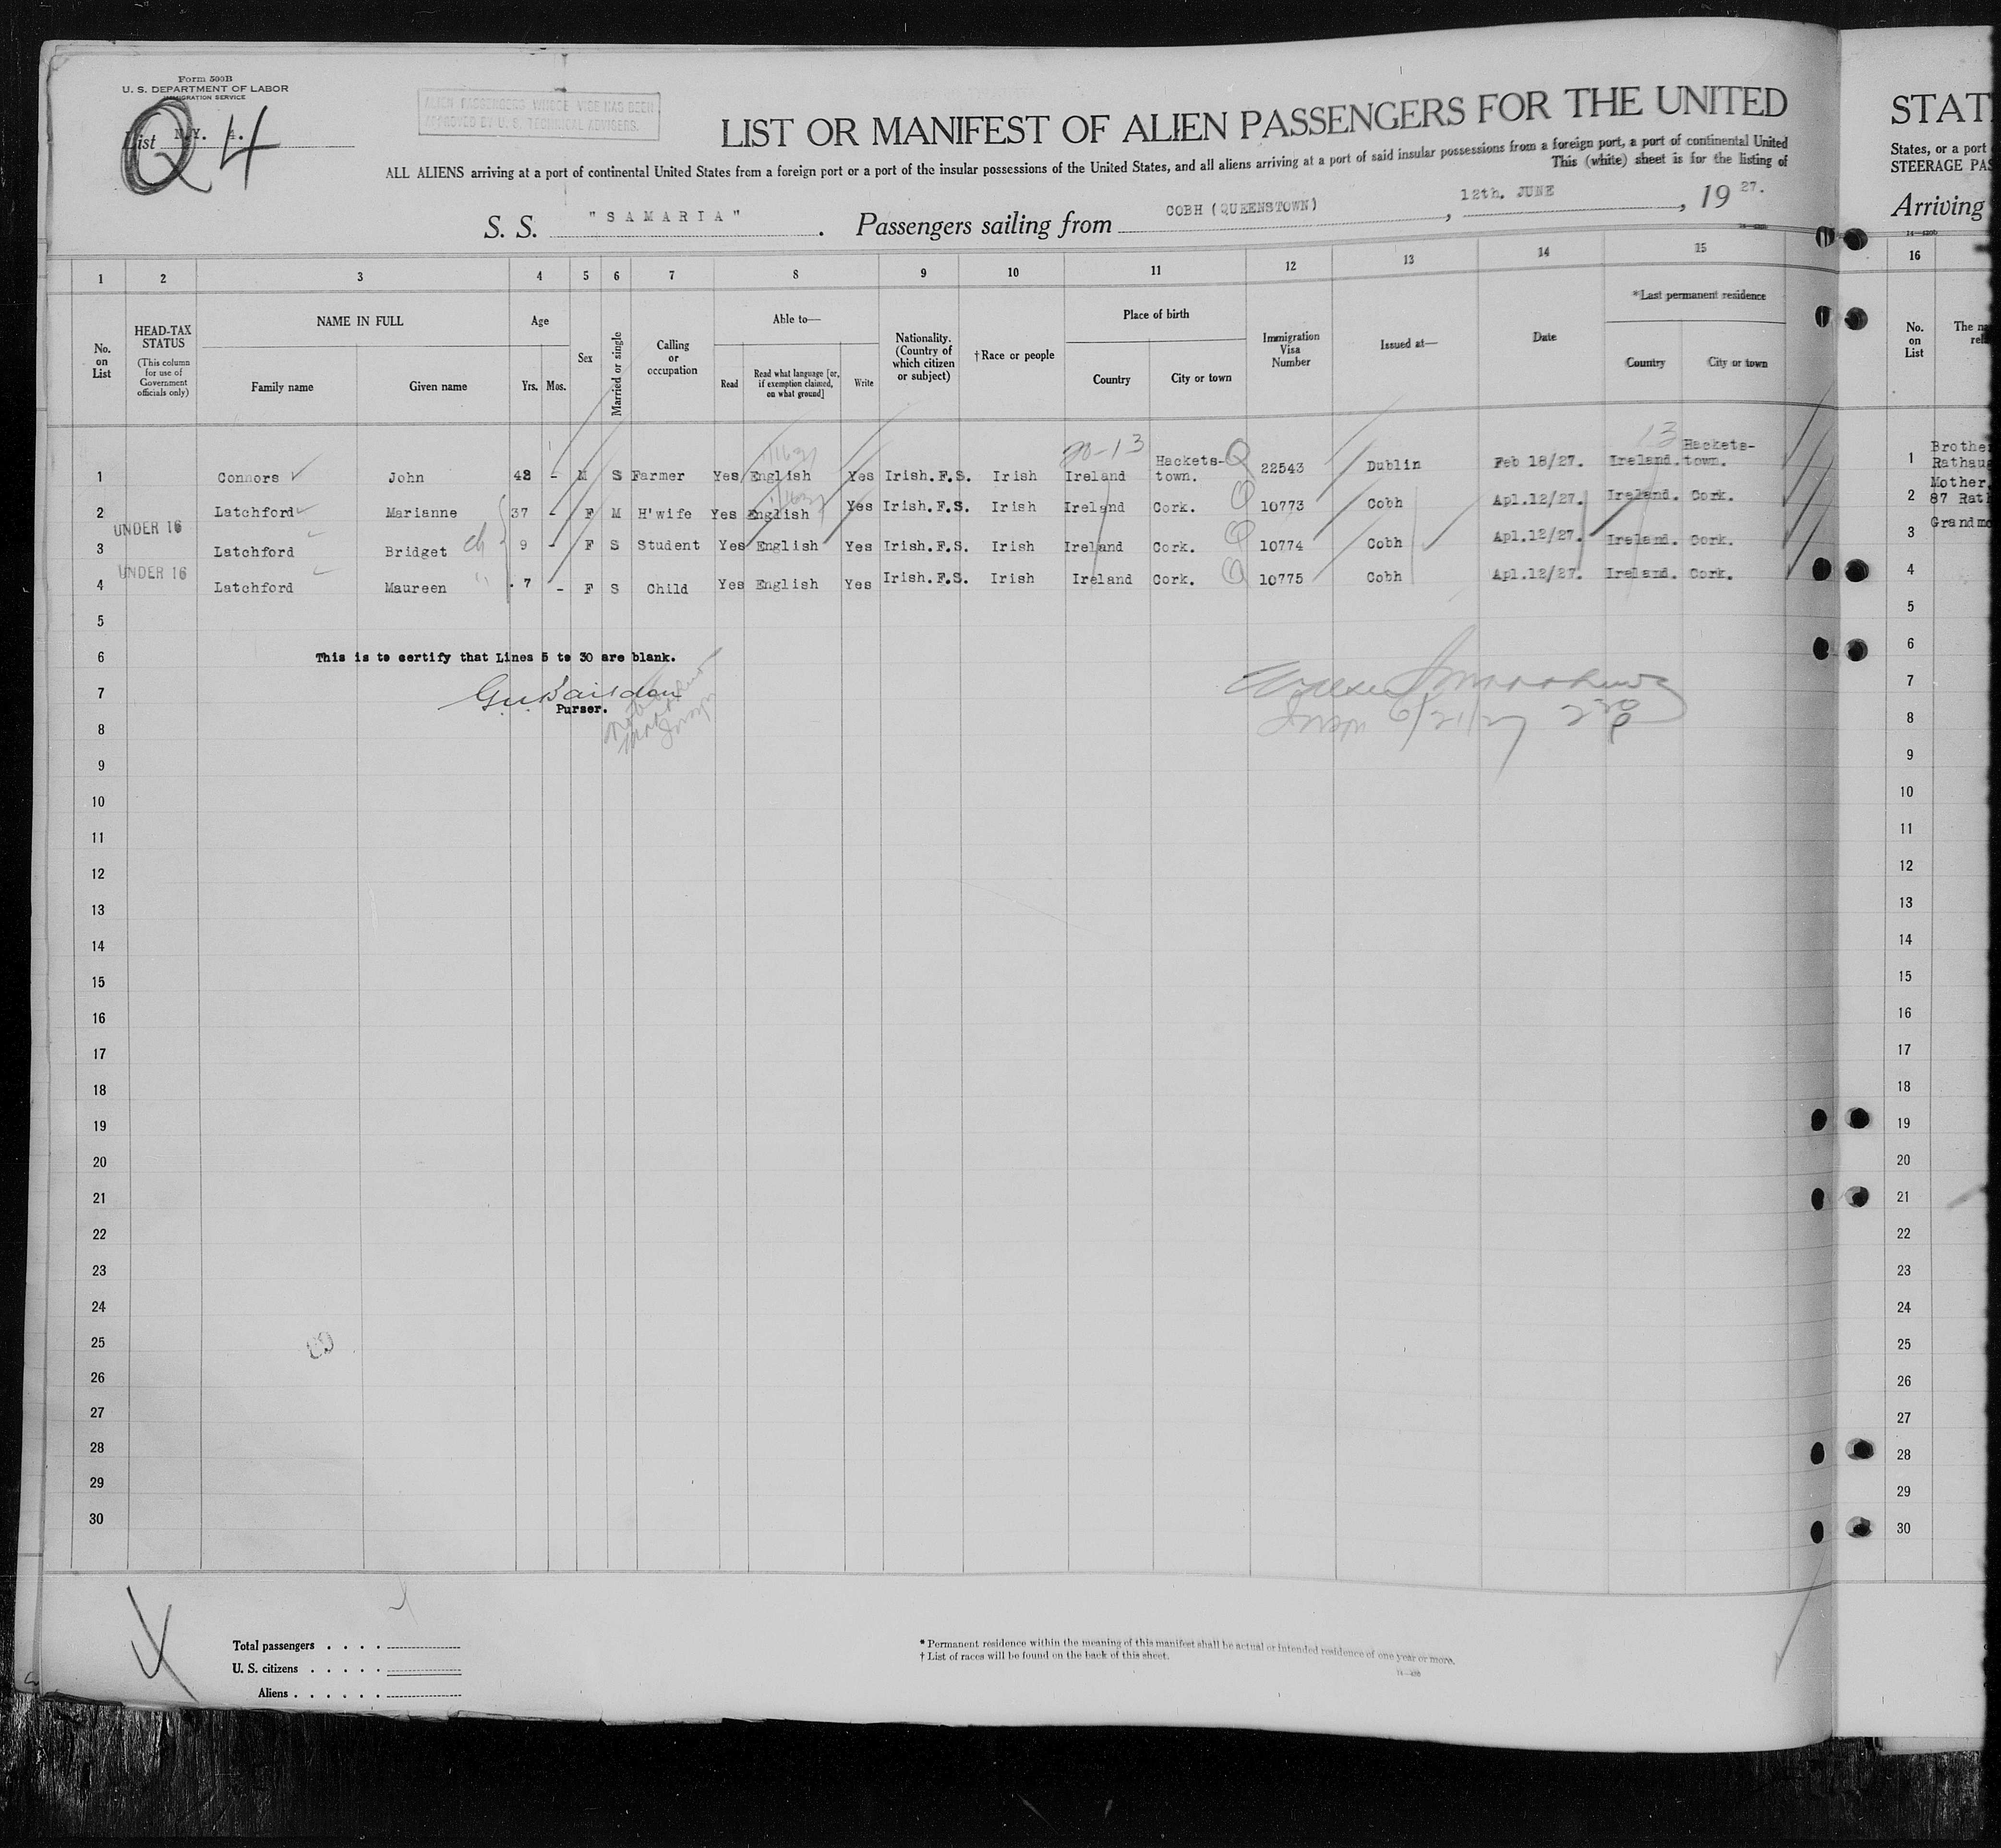 Form 500B
U. S. DEPARTMENT OF LABOR
IMMIGRATION SERVICE
List N.Y. 4.
Q 4
ALIEN PASSENGERS WHOSE VISE HAS BEEN
APPROVED BY U. S. TECHNICAL ADVISERS.
LIST OR MANIFEST OF ALIEN PASSENGERS FOR THE UNITED
ALL ALIENS arriving at a port of continental United States from a foreign port or a port of the insular possessions of the United States, and all aliens arriving at a port of said insular possessions from a foreign port, a port of continental United
This (white) sheet is for the listing of
S. S. "SAMARIA". Passengers sailing from COBH (QUEENSTOWN), 12th. JUNE, 19 27.
STAT
States, or a port
STEERAGE PAS
Arriving
1 2 3 4 5 6 7 8 9 10 11 12 13 14 15 16
No. on List
HEAD-TAX STATUS
(This column for use of Government officials only)
NAME IN FULL
Family name
Given name
Age
Yrs. Mos.
Sex
Married or single
Calling or occupation
Able to—
Read
Read what language [or, if exemption claimed, on what ground]
Write
Nationality. (Country of which citizen or subject)
† Race or people
Place of birth
Country
City or town
Immigration Visa Number
Issued at—
Date
*Last permanent residence
Country
City or town
No. on List
20-13
13
1 Connors John 43 - M S Farmer Yes English Yes Irish.F.S. Irish Ireland Hackets-town. Q 22543 Dublin Feb 18/27. Ireland. Hackets-town.
2 Latchford Marianne 37 - F M H'wife Yes English Yes Irish.F.S. Irish Ireland Cork. Q 10773 Cobh Apl.12/27. Ireland. Cork.
UNDER 16
3 Latchford Bridget ch 9 - F S Student Yes English Yes Irish.F.S. Irish Ireland Cork. Q 10774 Cobh Apl.12/27. Ireland. Cork.
UNDER 16
4 Latchford Maureen " 7 - F S Child Yes English Yes Irish.F.S. Irish Ireland Cork. Q 10775 Cobh Apl.12/27. Ireland. Cork.
1 Brothe
2 Mother,
87 Rath
3 Grandmo
4
5
6 This is to certify that Lines 5 to 30 are blank.
7
Purser.
6/21/27
8
9
10
11
12
13
14
15
16
17
18
19
20
21
22
23
24
25
26
27
28
29
30
5
6
7
8
9
10
11
12
13
14
15
16
17
18
19
20
21
22
23
24
25
26
27
28
29
30
Total passengers . . . .
U. S. citizens . . . . .
Aliens . . . . . .
* Permanent residence within the meaning of this manifest shall be actual or intended residence of one year or more.
† List of races will be found on the back of this sheet.